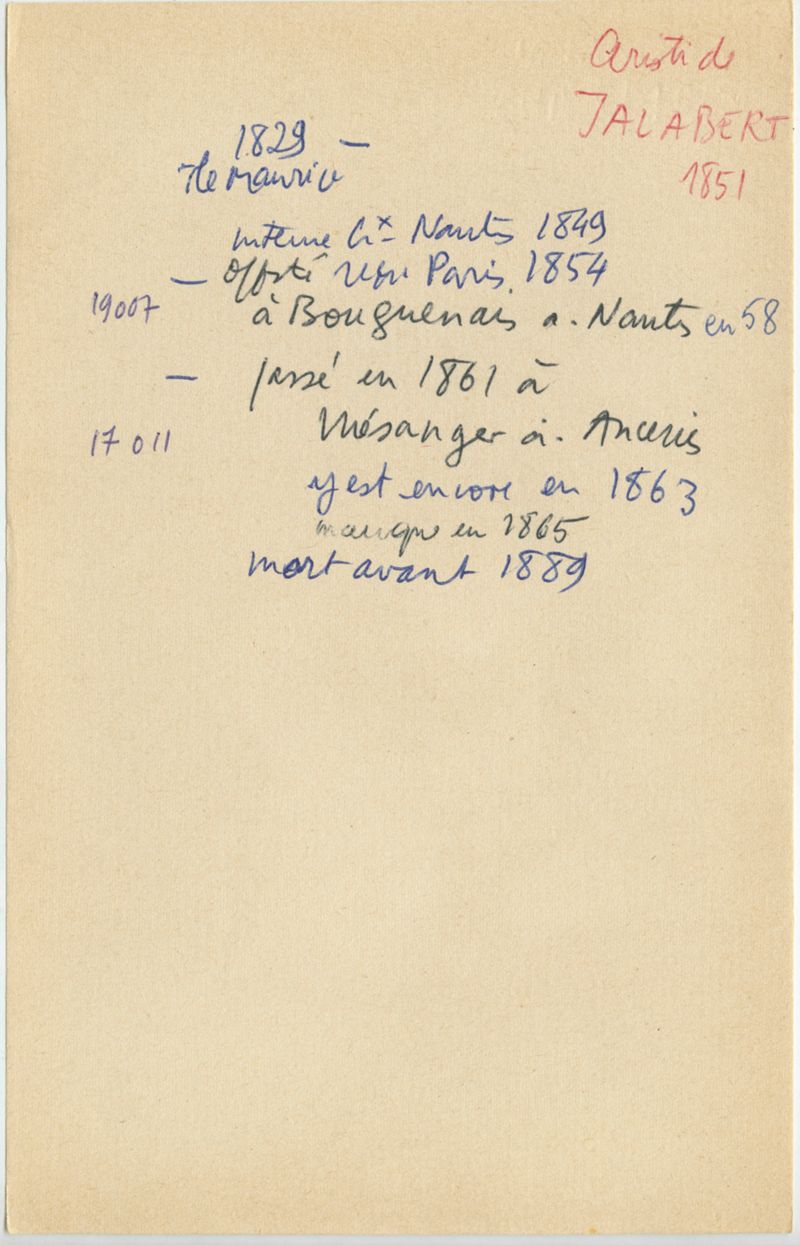 Aristide
JALABERT
1851
1829 —
Ile Maurice
interne hx Nantes 1849
— Offsté reçu Paris 1854
19007 à Bouguenais a. Nantes en 58
— passé en 1861 à
17011 Mésanger a. Ancenis
y est encore en 1863
manque en 1865
mort avant 1889